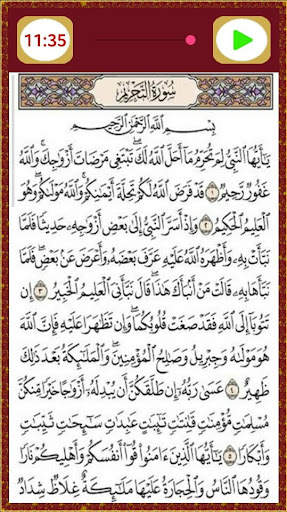 11:35
سُورَةُ التَّحْرِيمِ
بِسْمِ اللَّهِ الرَّحْمَٰنِ الرَّحِيمِ
يَا أَيُّهَا النَّبِيُّ لِمَ تُحَرِّمُ مَا أَحَلَّ اللَّهُ لَكَ ۖ تَبْتَغِي مَرْضَاتَ أَزْوَاجِكَ ۚ وَاللَّهُ
غَفُورٌ رَّحِيمٌ ١ قَدْ فَرَضَ اللَّهُ لَكُمْ تَحِلَّةَ أَيْمَانِكُمْ ۚ وَاللَّهُ مَوْلَاكُمْ ۖ وَهُوَ
الْعَلِيمُ الْحَكِيمُ ٢ وَإِذْ أَسَرَّ النَّبِيُّ إِلَىٰ بَعْضِ أَزْوَاجِهِ حَدِيثًا فَلَمَّا
نَبَّأَتْ بِهِ وَأَظْهَرَهُ اللَّهُ عَلَيْهِ عَرَّفَ بَعْضَهُ وَأَعْرَضَ عَن بَعْضٍ ۖ فَلَمَّا
نَبَّأَهَا بِهِ قَالَتْ مَنْ أَنبَأَكَ هَٰذَا ۖ قَالَ نَبَّأَنِيَ الْعَلِيمُ الْخَبِيرُ ٣ إِن
تَتُوبَا إِلَى اللَّهِ فَقَدْ صَغَتْ قُلُوبُكُمَا ۖ وَإِن تَظَاهَرَا عَلَيْهِ فَإِنَّ اللَّهَ
هُوَ مَوْلَاهُ وَجِبْرِيلُ وَصَالِحُ الْمُؤْمِنِينَ ۖ وَالْمَلَائِكَةُ بَعْدَ ذَٰلِكَ
ظَهِيرٌ ٤ عَسَىٰ رَبُّهُ إِن طَلَّقَكُنَّ أَن يُبْدِلَهُ أَزْوَاجًا خَيْرًا مِّنكُنَّ
مُسْلِمَاتٍ مُّؤْمِنَاتٍ قَانِتَاتٍ تَائِبَاتٍ عَابِدَاتٍ سَائِحَاتٍ ثَيِّبَاتٍ
وَأَبْكَارًا ٥ يَا أَيُّهَا الَّذِينَ آمَنُوا قُوا أَنفُسَكُمْ وَأَهْلِيكُمْ نَارًا
وَقُودُهَا النَّاسُ وَالْحِجَارَةُ عَلَيْهَا مَلَائِكَةٌ غِلَاظٌ شِدَادٌ